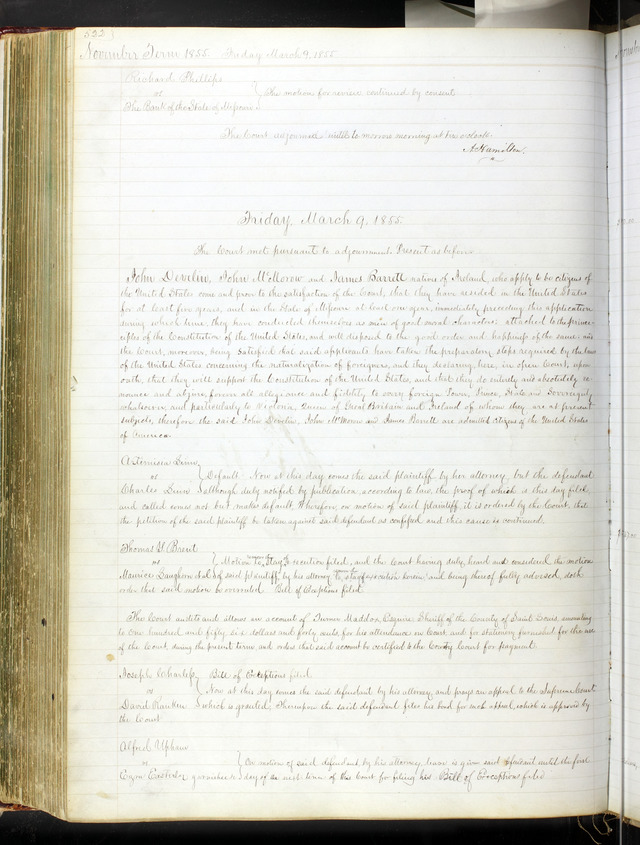 522
November Term 1855. Friday March 9, 1855
Richard Phillips
vs } The motion for review continued by consent
The Bank of the State of Missouri
The Court adjourned until to morrow morning at ten o'clock
A Hamilton.
Friday, March 9, 1855.
The Court met pursuant to adjournment. Present as before
John Develin, John McMorow and James Barrett natives of Ireland, who apply to be citizens of
the United States come and prove to the satisfaction of the Court, that they have resided in the United States
for at least five years, and in the State of Missouri at least one year, immediately preceding this application
during which time, they have conducted themselves as men of good moral character: attached to the prin-
ciples of the Constitution of the United States, and well disposed to the good order and happiness of the same: and
the Court, moreover, being satisfied that said applicants have taken the preparatory steps required by the laws
of the United States concerning the naturalization of foreigners, and they declaring, here, in open Court, upon
oath, that they will support the Constitution of the United States, and that they do entirely and absolutely re-
nounce and abjure forever all allegiance and fidelity to every foreign Power, Prince, State and Sovereignty
whatsoever, and particularly to Victoria, Queen of Great Britain and Ireland of whom they are at present
subjects, therefore the said John Develin, John McMorow and James Barrett are admitted citizens of the United States
of America.
Artimisia Linn
vs } Default. Now at this day comes the said plaintiff by her attorney, but the defendant
Charles Linn although duly notified by publication according to law, the proof of which is this day filed,
and called comes not but makes default. Wherefore, on motion of said plaintiff, it is ordered by the Court, that
the petition of the said plaintiff be taken against said defendant as confessed and this cause is continued.
Thomas H Brent
vs } Motion to Stay Execution filed, and the Court having duly heard and considered the motion
Maurice Langhorn et al of said plaintiff, by his attorney to stay execution herein and being thereof fully advised, doth
order that said motion be overruled. Bill of Exceptions filed.
The Court audits and allows an account of Turner Maddox, Esquire Sheriff of the County of Saint Louis, amounting
to One hundred and fifty six dollars and forty cents, for his attendance on Court and for stationery furnished for the use
of the Court, during the present term and orders that said account be certified to the County Court for payment.
Joseph Charless Bill of Exceptions filed.
vs } Now at this day comes the said defendant by his attorney, and prays an appeal to the Supreme Court
David Rankin which is granted, Thereupon the said defendant files his bond for such appeal, which is approved by
the Court
Alfred Upham
vs } On motion of said defendant, by his attorney, leave is given said defendant until the first
garnishee day of the next term of this Court for filing his Bill of Exceptions filed